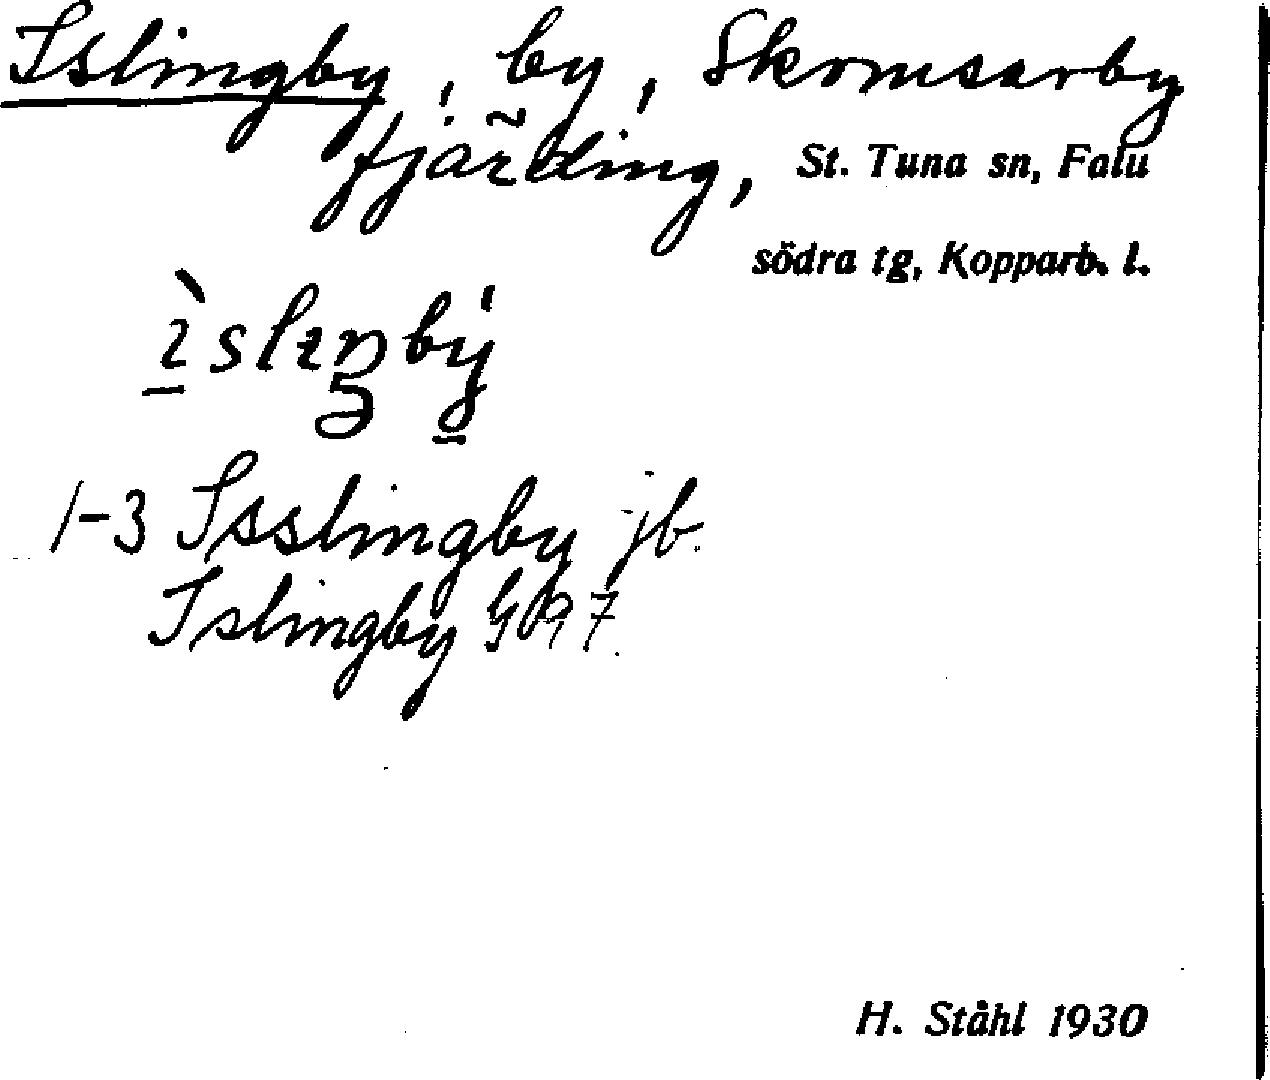 Islingby, by, Skomsarby
fjärding, St. Tuna sn, Falu
södra tg, Kopparb. l.
ìslɪŋbý
1-3 Isslingby jb.
Islingby G 97.
H. Ståhl 1930